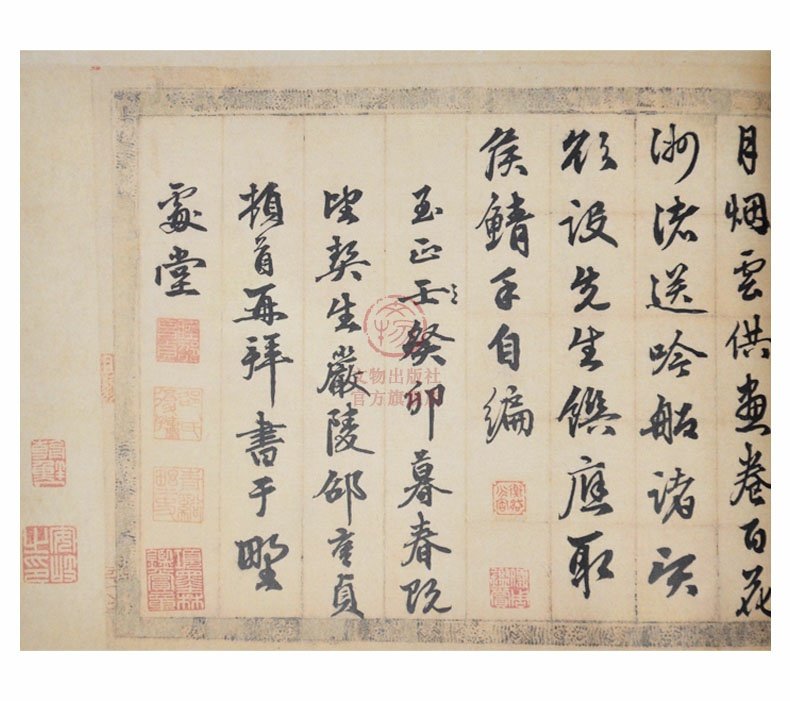 月烟雲供畫卷百花
洲渚送吟船諸
設先生饌應取
侯鯖手自編
至正壬癸卯暮春既
望契生嚴陵邵亨貞
頓首再拜書于野
處堂
文物出版社
官方旗